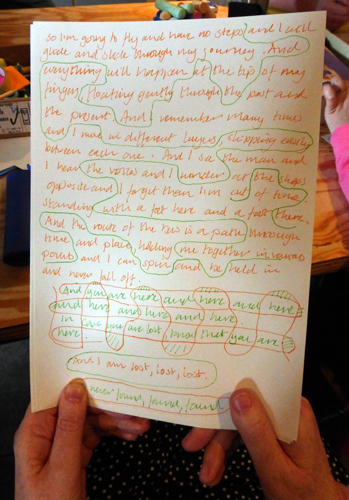 So I'm going to fly and have no steps and I will
glide and slide through my journey. And
everything will happen at the tip of my
fingers, floating gently through the past and
the present. And I remember many times
and I move in different layers, skipping easily
between each one. And I see the man and
I hear the voices and I wonder at the shops
opposite and I forget them I'm out of time
standing with a foot here and a foot there.
And the route of the is a path through
time and place, holding me together in
and I can spin and be held in
and never fall off.
And you are here and here and here
and here and here and here.
in case you are lost I know that you are
here.
And I am lost, lost, lost.
never found, found, found